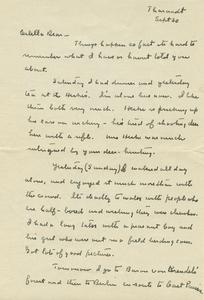 Tharandt
Sept 20
Estella Dear -
Things happen so fast its hard to
remember what I have or havent told you
about.
Saturday I had dinner and yesterday
tea at the Heskes. I'm alone here now. I like
them both very much. Heske is freshening up
his ear on archery - his kind of shooting deer
here with a rifle. Mrs Heske was much
intrigued by your deer-hunting.
Yesterday (Sunday) I walked all day
alone, and enjoyed it much more than with
the crowd. Its deadly to walk with people who
are half-bored and wishing they were elsewhere.
I had a long talk with a peasant boy and
his girl who were out in a field herding cows.
Got lots of good pictures.
Tomorrow I go to Baron von
forest and then to Berlin en route to East Prussia